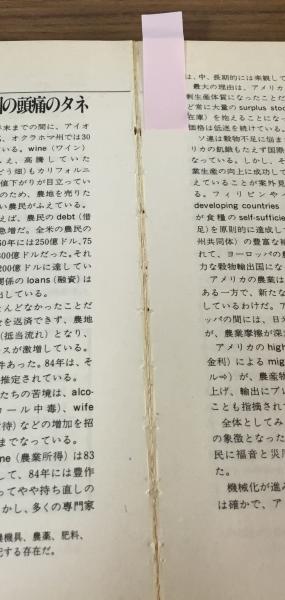 の頭痛のタネ
年末までの間に、アイオ
、オクラホマ州では30
いる。wine（ワイン）
え、高騰していた
どう畑）もカリフォルニ
値下がりが目立ってい
のため、農地を売りた
い農民がふえている。
えば、農民の debt（借
急増だ。全米の農民の
60年には250億ドル、75
00億ドルだった。それ
200億ドルに達してい
関係の loans（融資）は
出している。
とんどなかったことだ
金を返済できず、農地
（抵当流れ）となり、
ースが激増している。
件あった。84年は、そ
推定されている。
たちの苦境は、alco-
コール中毒）、wife
待）などの増加を招
までなっている。
me（農業所得）は83
して、84年には豊作
ってやや持ち直しの
かし、多くの専門家
農機具、農薬、肥料、
配する存在だ。
は、中、長期的には楽観して
最大の理由は、アメリカ
剰生産体質になったことだ
ど常に大量の surplus sto
在庫）を抱えることになっ
価格は低迷を続けている。
ソ連は穀物不足に悩ま
リカの飢餓もたえず国際
なっている。しかし、そ
業生産の向上に成功して
えていることが案外見
る。フィリピンや
developing countries
が食糧の self-sufficie
足）を原則的に達成して
州共同体）の豊富な補
れて、ヨーロッパの農
力な穀物輸出国にな
アメリカの農業は
ある一方で、新たな
しているわけだ。ア
ッパの間には、日米
が、農業摩擦が深ま
アメリカの high
金利）による mig
ル⇒）が、農産物
上げ、輸出にブレ
ことも指摘されて
全体としてみ
の象徴となった
民に福音と災厄
た。
機械化が進み
は確かで、ア